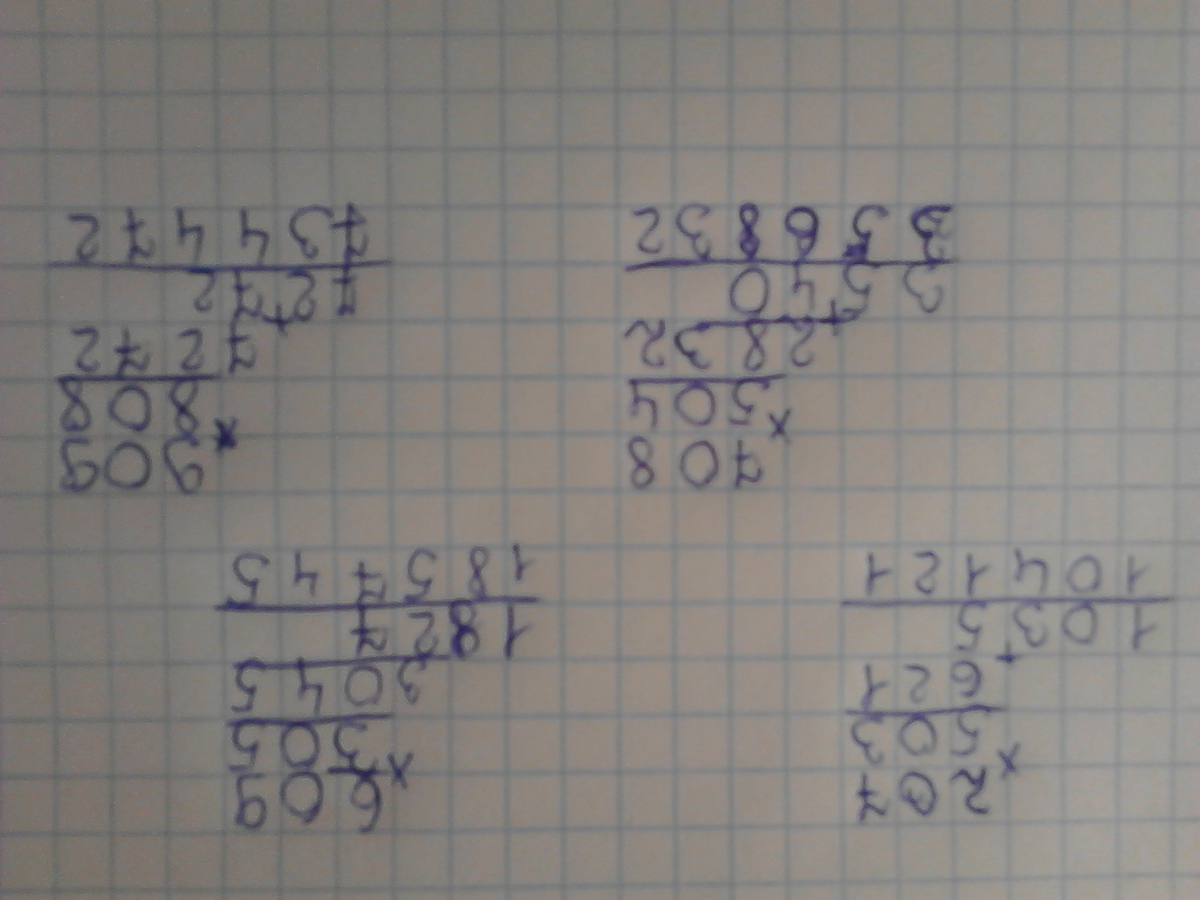 207
×
503
621
+
1035
104121
609
×
305
3045
+
1827
185745
708
×
504
2832
+
3540
356832
909
×
808
7272
+
7272
734472